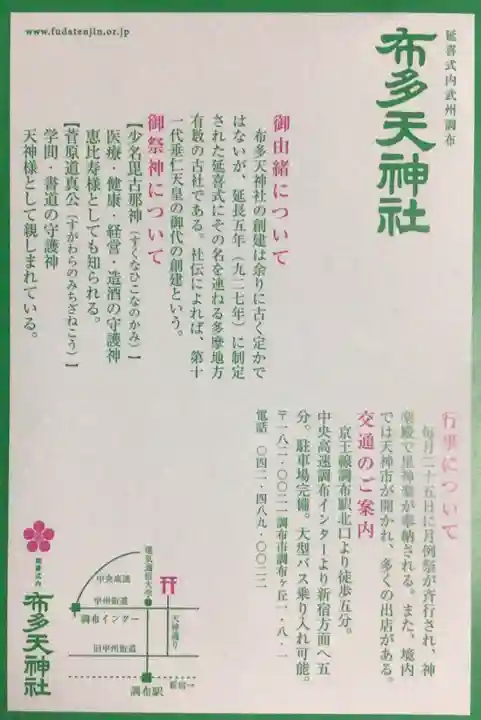 延喜式内武州調布
布多天神社
www.fudatenjin.or.jp
御由緒について
布多天神社の創建は余りに古く定かで
はないが、延長五年(九二七年)に制定
された延喜式にその名を連ねる多摩地方
有数の古社である。社伝によれば、第十
一代垂仁天皇の御代の創建という。
御祭神について
【少名毘古那神(すくなひこなのかみ)】
医療・健康・経営・造酒の守護神
恵比寿様としても知られる。
【菅原道真公(すがわらのみちざねこう)】
学問・書道の守護神
天神様として親しまれている。
行事について
毎月二十五日に月例祭が斉行され、神
楽殿で里神楽が奉納される。また、境内
では天神市が開かれ、多くの出店がある。
交通のご案内
京王線調布駅北口より徒歩五分。
中央高速調布インターより新宿方面へ五
分。駐車場完備。大型バス乗り入れ可能。
〒一八二-〇〇二一調布市調布ヶ丘一-八-一
電話 〇四二-四八九-〇〇二二
電気通信大学
中央高速
甲州街道
調布インター
天神通り
旧甲州街道
調布駅
新宿→
延喜式内
布多天神社